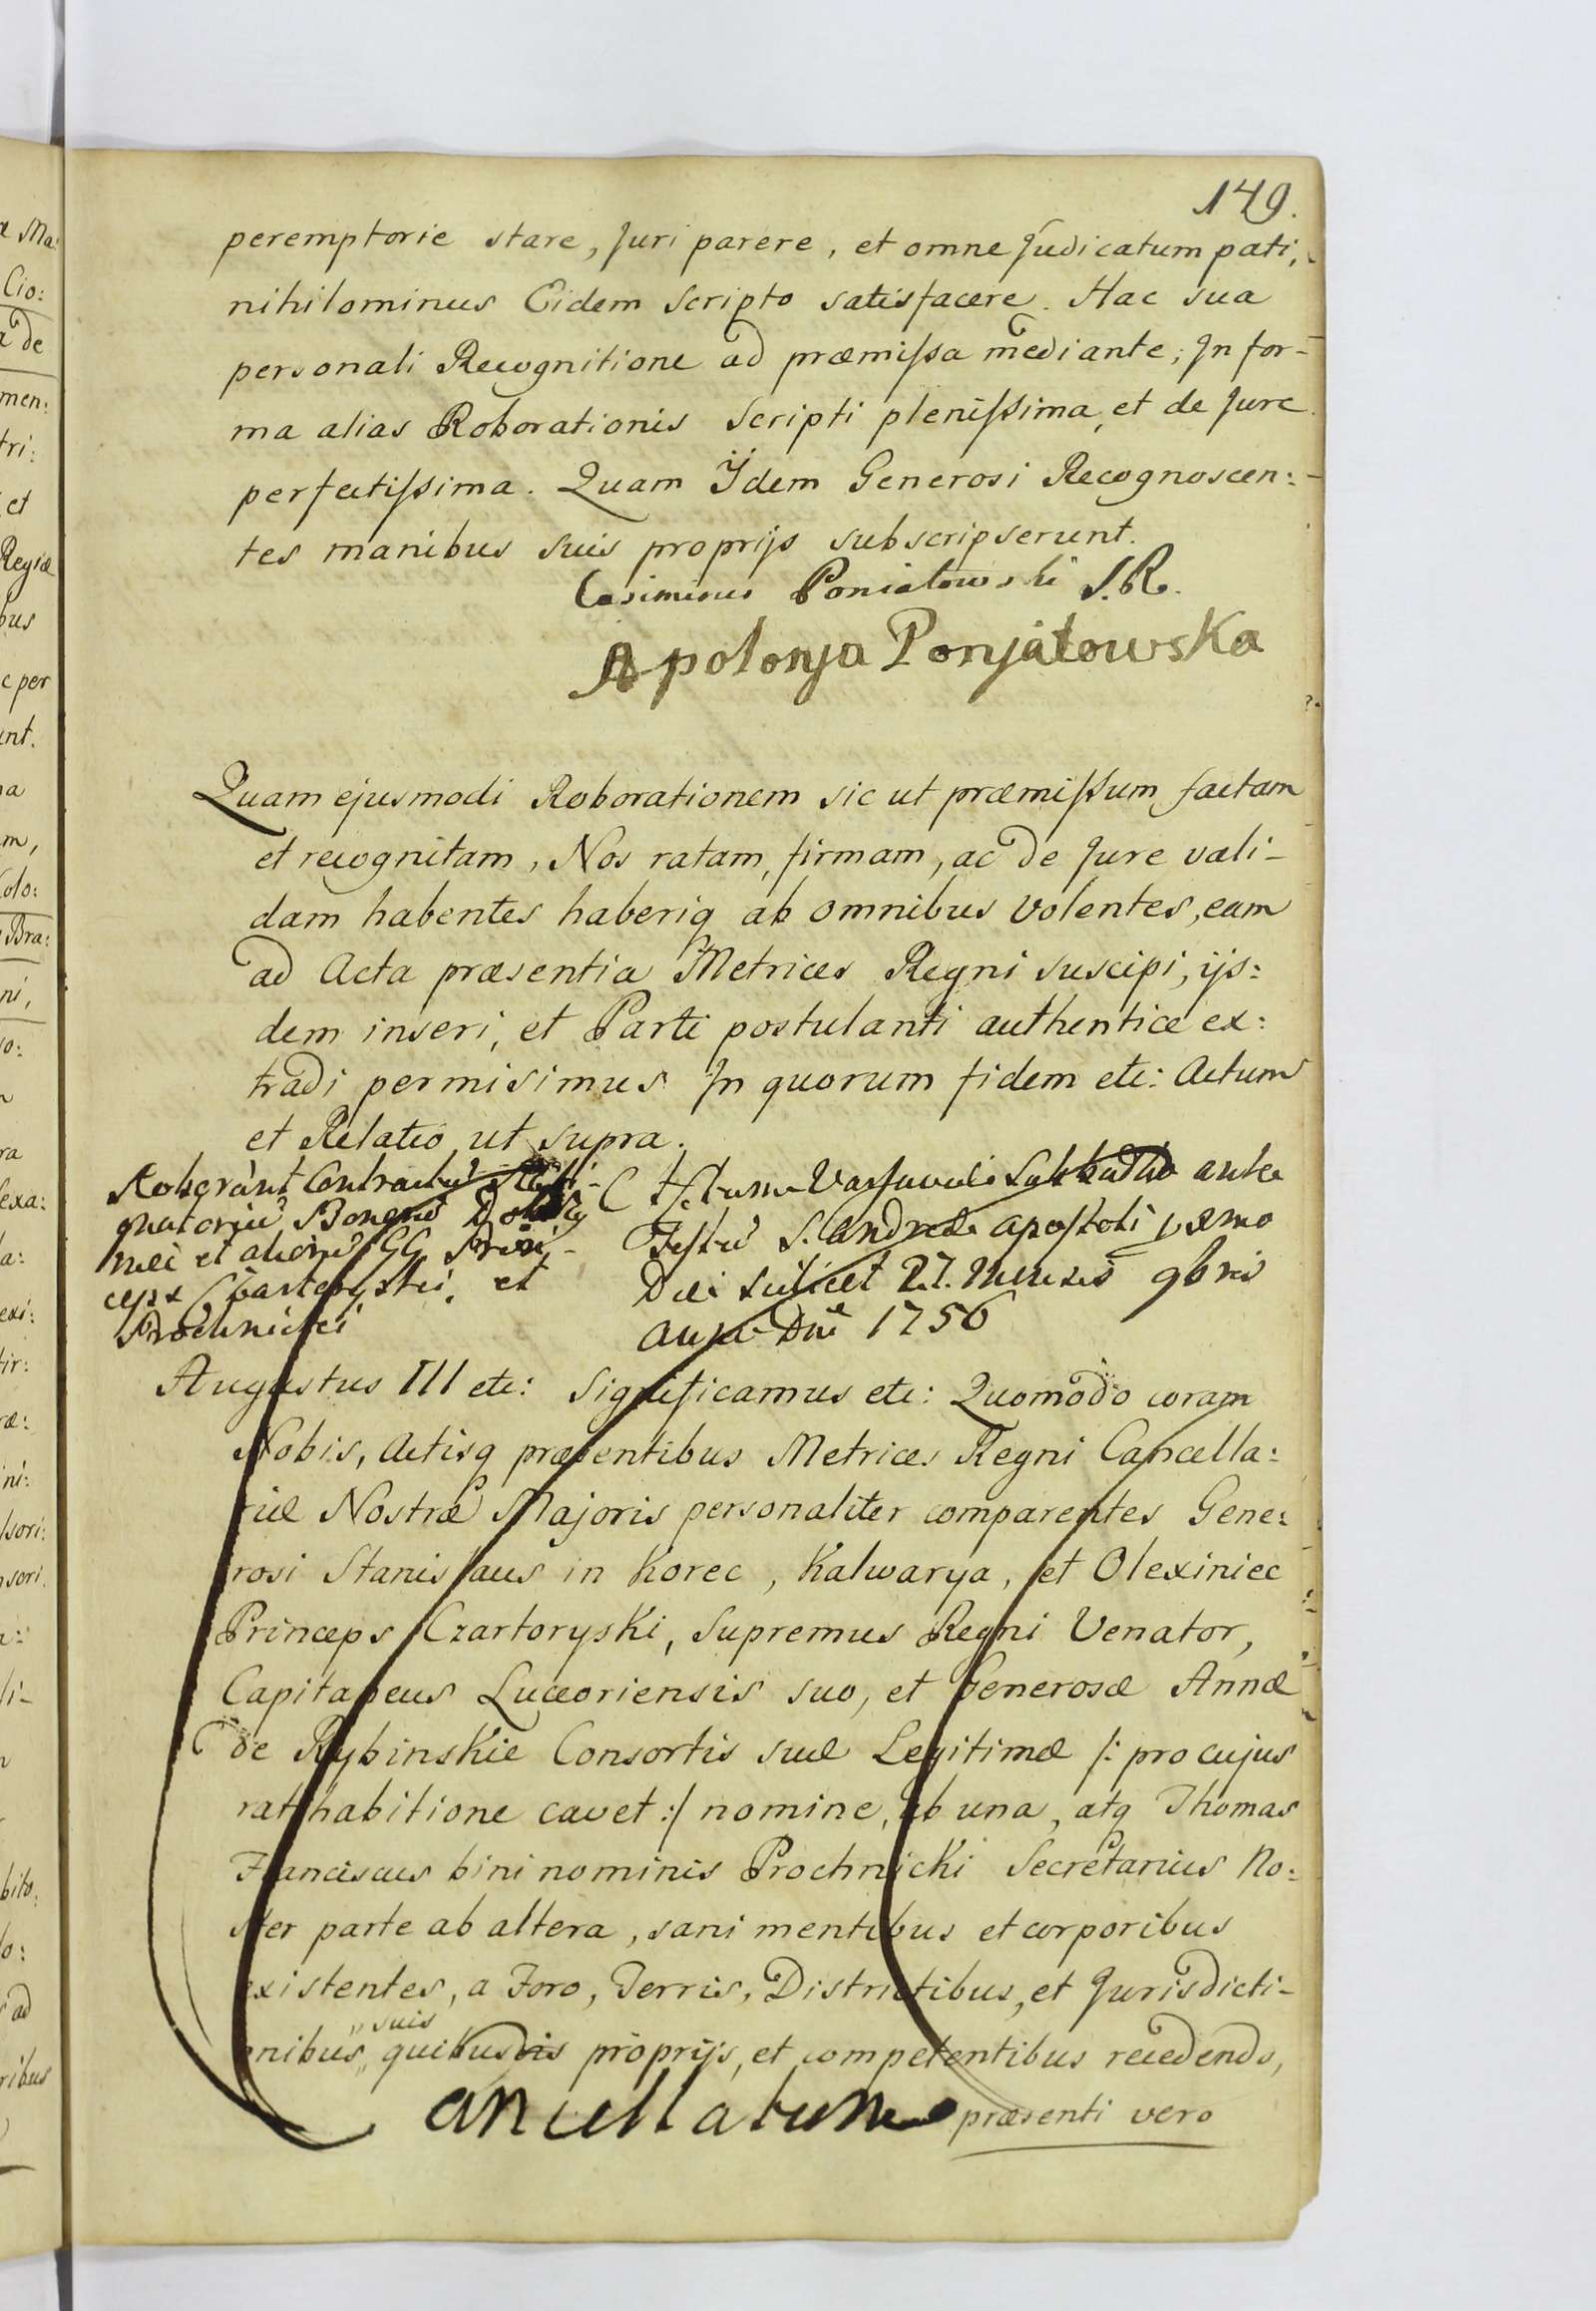 149.
peremptorie stare, Juri parere, et omne Judicatum pati,
nihilominus Eidem Scripto satisfacere. Hac sua
personali Recognitione ad præmissa mediante; In for-
ma alias Roborationis Scripti plenissima, et de Jure
perfectissima. Quam Ijdem Generosi Recognoscen:
tes manibus suis proprijs subscripserunt.
Casimirus Poniatowski S.R.
Apolonja Ponjatowska
Quam ejusmodi Roborationem sic ut præmissum factam
et recognitam, Nos ratam, firmam, ac de Jure vali-
dam habentes haberiq ab omnibus volentes, eam
ad Acta præsentia Metrices Regni suscipi, ijs:
dem inseri, et Parti postulanti authentice ex:
tradi permisimus. In quorum fidem etc: Actum
et Relatio ut supra.
Roborant Contractum
Bonorum
et GG. Prin-
ceps Czartoryski, et
Prochnicki
Actum Varsaviæ Sabbatho ante
Festum S. Andreæ Apostoli
Die scilicet 27. Mensis 9bris
Anno Dni 1756
Augustus III etc: Significamus etc: Quomodo coram
Nobis, Actisq præsentibus Metrices Regni Cancella:
riæ Nostræ Majoris personaliter comparentes Gene:
rosi Stanislaus in Korec, Kalwarya, et Olexiniec
Princeps Czartoryski, Supremus Regni Venator,
Capitaneus Luceoriensis suo, et Generosæ Annæ
de Rybinskie Consortis suæ Legitimæ /: pro cujus
ratihabitione cavet :/ nomine, ab una, atq Thomas
Franciscus bini nominis Prochnicki Secretarius No:
ster parte ab altera, sani mentibus et corporibus
existentes, a Foro, Terris, Districtibus, et Jurisdicti-
suis
onibus quibusvis proprijs, et competentibus recedendo,
Cancellatum præsenti vero